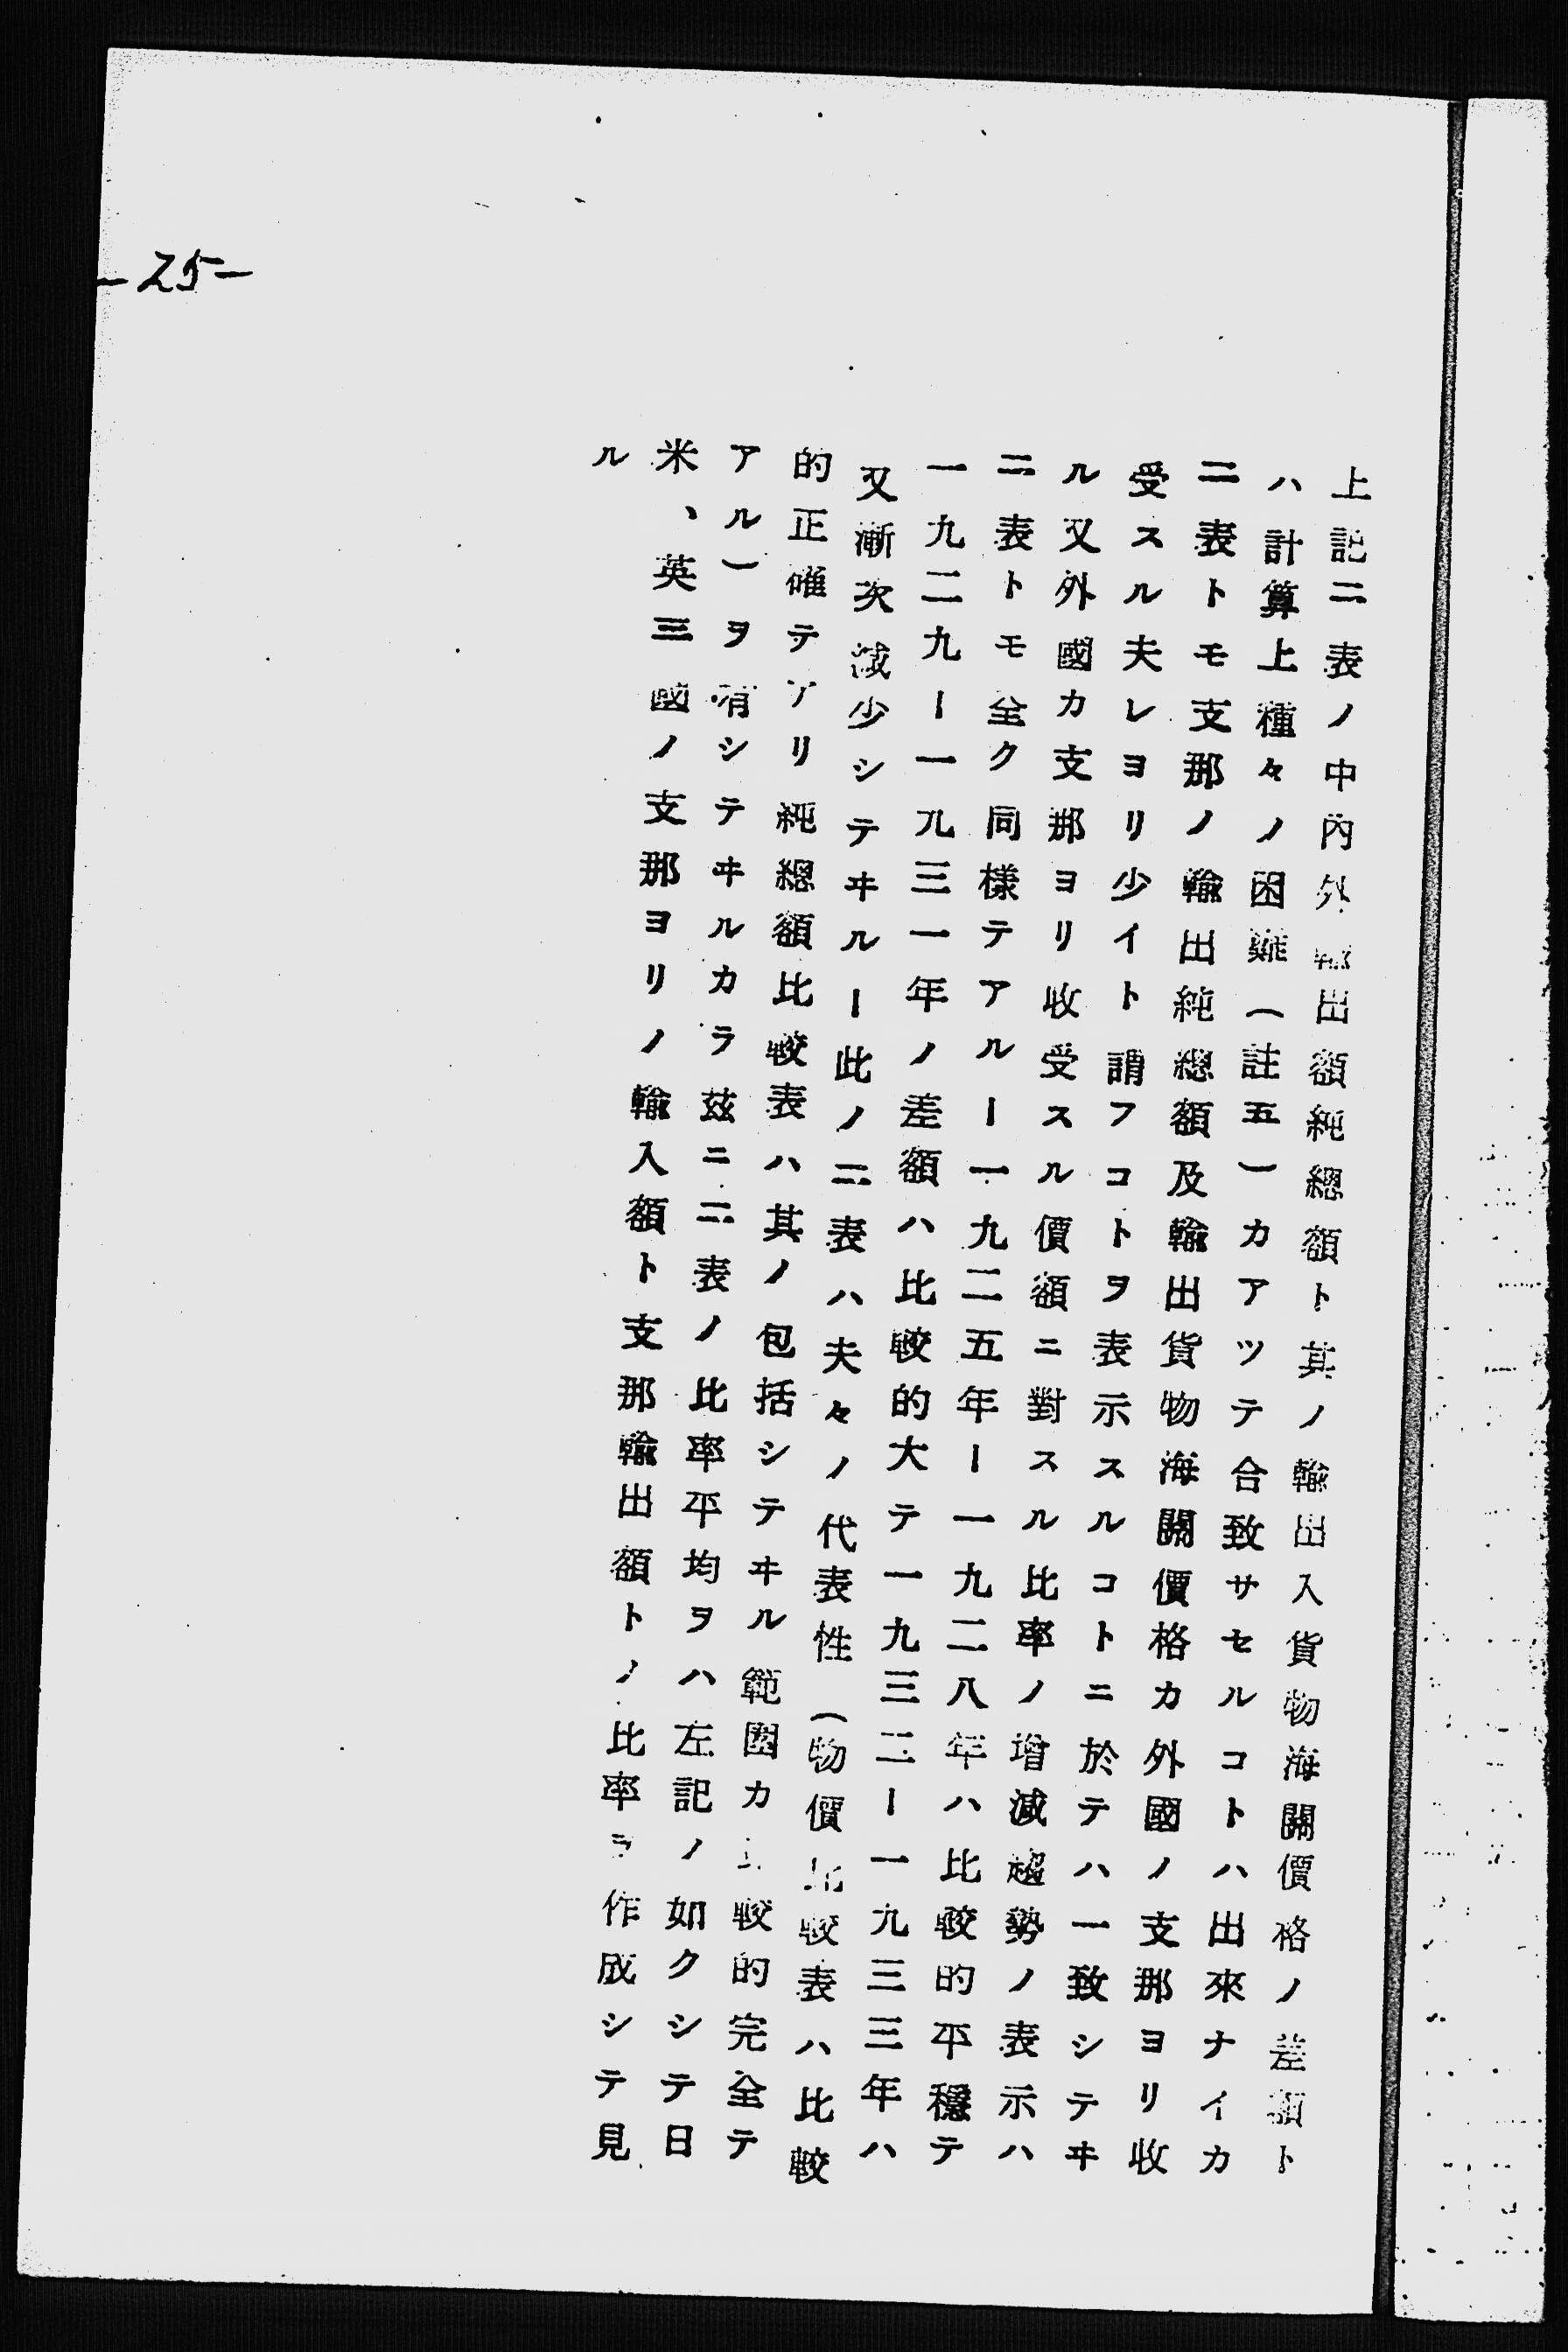 上記二表ノ中內外輸出額純總額ト其ノ輸出入貨物海關價格ノ差額ト
ハ計算上種々ノ困難(註五)カアツテ合致サセルコトハ出來ナイカ
二表トモ支那ノ輸出純總額及輸出貨物海關價格カ外國ノ支那ヨリ收
受スル夫レヨリ少イト謂フコトヲ表示スルコトニ於テハ一致シテヰ
ル又外國カ支那ヨリ收受スル價額ニ對スル比率ノ增減趨勢ノ表示ハ
二表トモ全ク同樣テアルー一九二五年ー一九二八年ハ比較的平穩テ
一九二九ー一九三一年ノ差額ハ比較的大テ一九三二ー一九三三年ハ
又漸次減少シテヰルー此ノ二表ハ夫々ノ代表性(物價比較表ハ比較
的正確テアリ純總額比較表ハ其ノ包括シテヰル範圍カ比較的完全テ
アル)ヲ有シテヰルカラ茲ニ二表ノ比率平均ヲハ左記ノ如クシテ日
米、英三國ノ支那ヨリノ輸入額ト支那輸出額トノ比率ヲ作成シテ見
ル
-25-